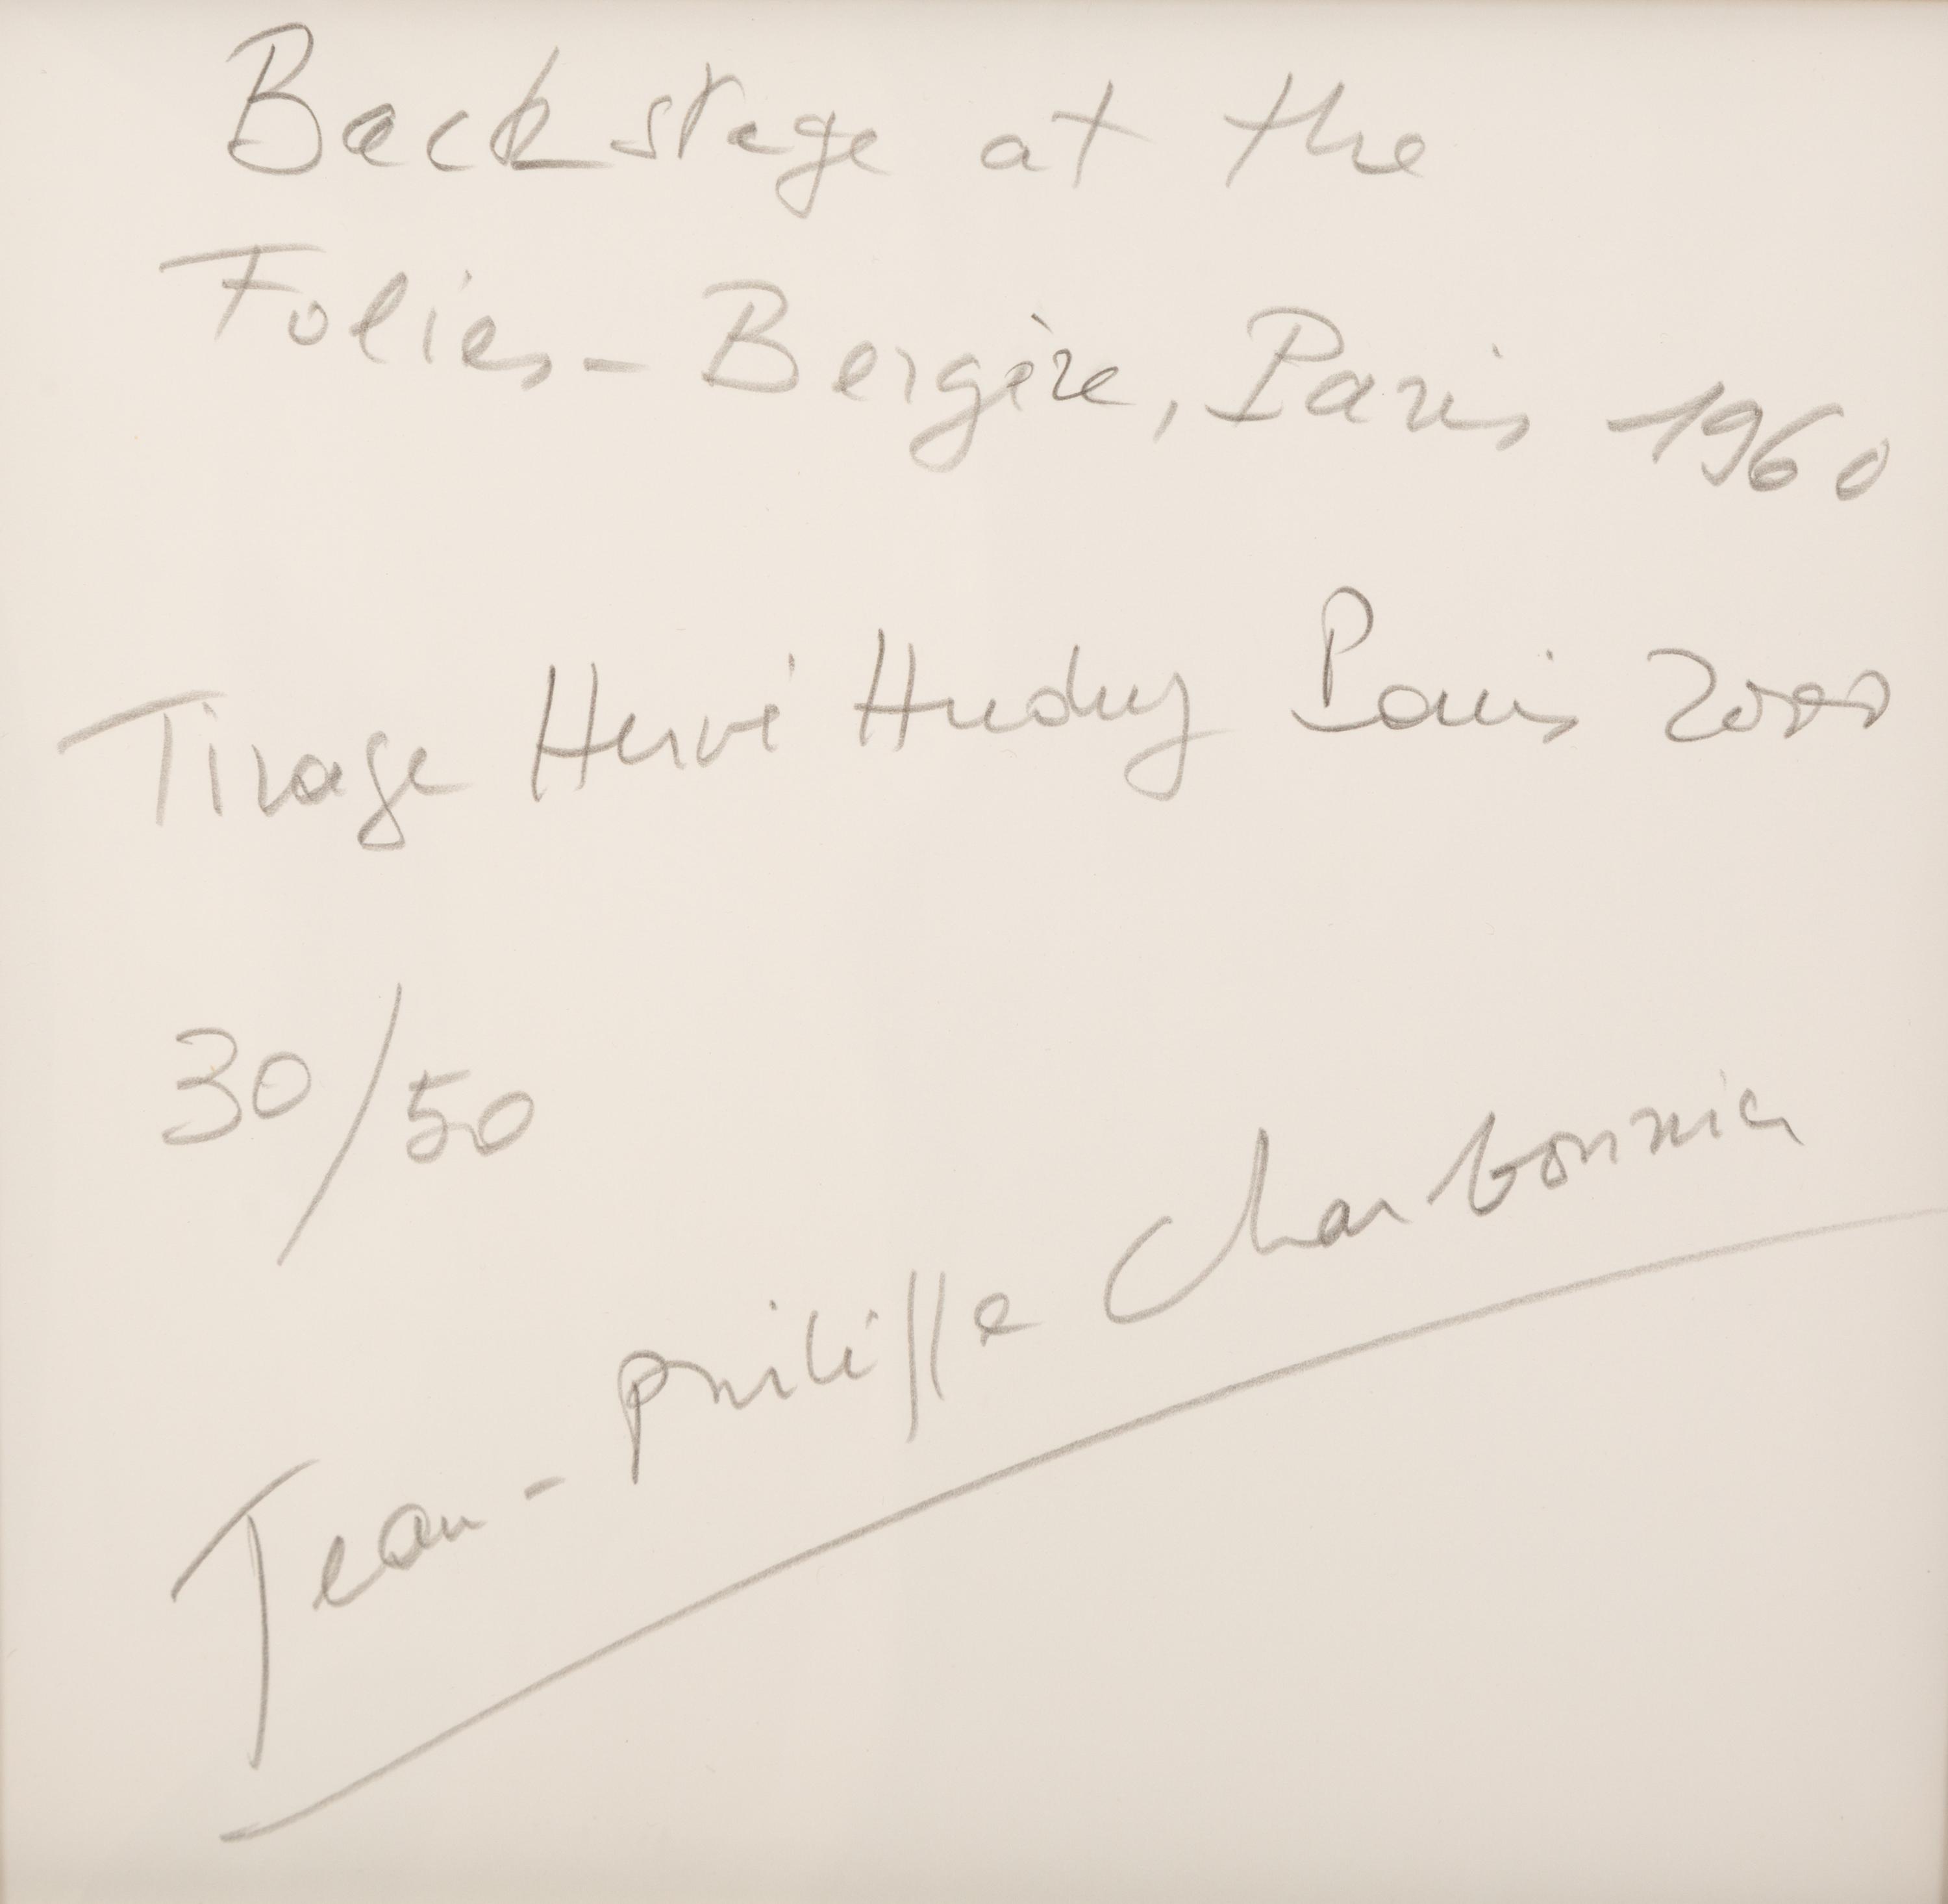 Backstage at the
Folies-Bergère, Paris 1960
Tirage Hervé Hudry Paris 2000
30/50
Jean-philippe Charbonnier